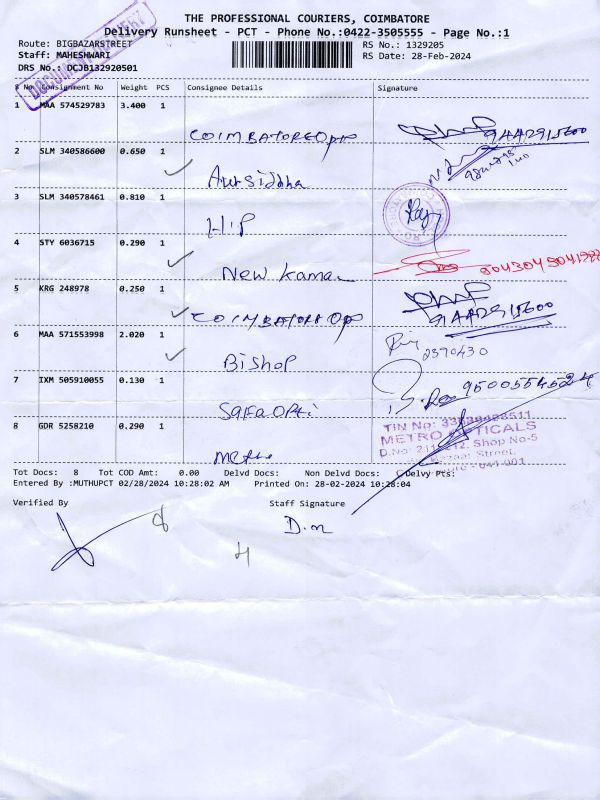 THE PROFESSIONAL COURIERS, COIMBATORE
Delivery Runsheet - PCT - Phone No.:0422-3505555 - Page No.:1
Route: BIGBAZARSTREET RS No.: 1329205
Staff: MAHESHWARI RS Date: 28-Feb-2024
DRS No.: DCJB132920501
DOCUMENT DELIVERY
S No. Consignment No Weight PCS Consignee Details Signature
1 MAA 574529783 3.400 1
COIMBATORE Opp
2 SLM 340586600 0.650 1
Aursiddha
3 SLM 340578461 0.810 1
H.P
4 STY 6036715 0.290 1
New Kama
5 KRG 248978 0.250 1
COIMBATORE Opp
6 MAA 571553998 2.020 1
2370430
Bishop
7 IXM 505910055 0.130 1
9500554524
Safa Opti
8 GDR 5258210 0.290 1
METRO OPTICALS
Shop No-5
Metro
Tot Docs: 8 Tot COD Amt: 0.00 Delvd Docs: Non Delvd Docs: Delvy Pts:
Entered By :MUTHUPCT 02/28/2024 10:28:02 AM Printed On: 28-02-2024 10:28:04
Verified By Staff Signature
8
D.m
4